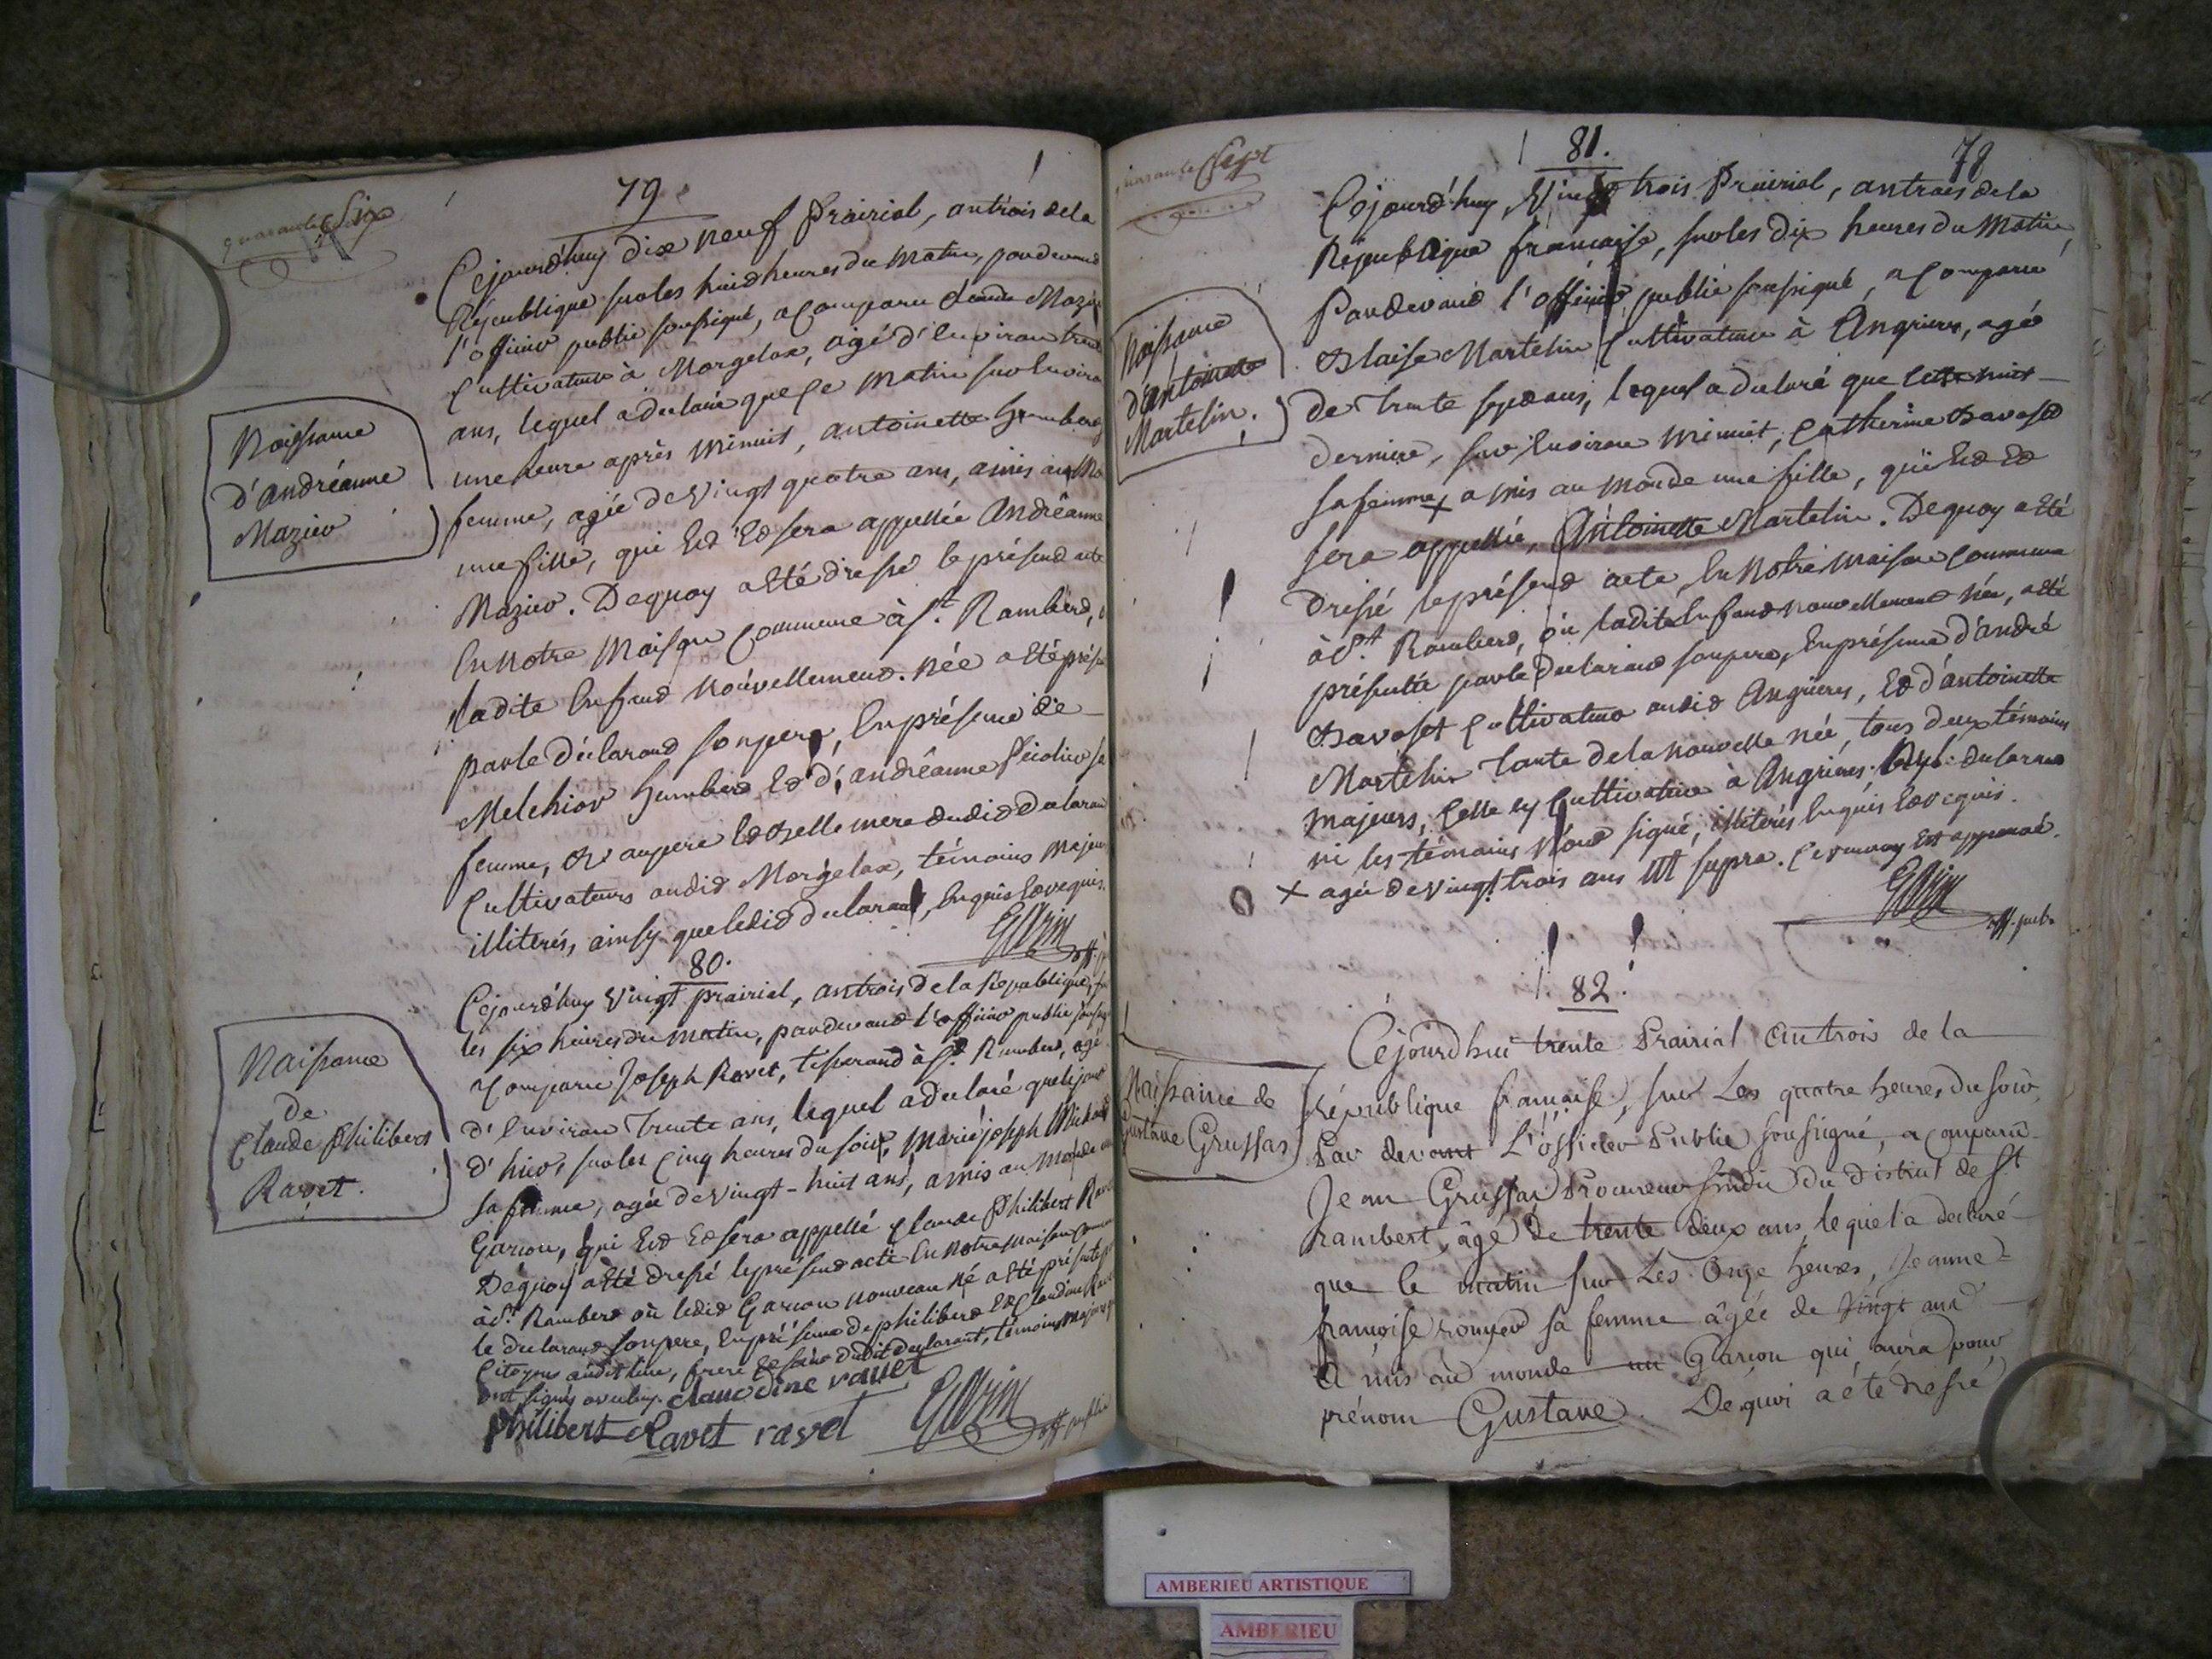 quarante Six
79
Cejourd'huy dix neuf Prairial, an trois de la
République sur les huid heures du matin, pardevand
l'officier public soussigné, a Comparu Claude Mazi
Cultivateur à Morgelax, agé d'Environ trent
ans, lequel a declaré que Ce matin sur Enviro
une heure après minuit, antoinette humberd
femme, agée de Vingt quatre ans, a mis au Mo
une fille, qui Est Ed sera appellée Andréanne
Mazier. Dequoy a Eté dressé le présend acte
En Notre Maison Commune à St. Ramberd,
ladite Enfand Nouvellemend née a Eté prése
par le Déclarand son pere, En présence de
Melchior humberd Ed d'andréanne
femme, beaupere Ed belle mere dudid declaran
Cultivateurs audid Morgelax, témoins Majeurs
illiterés, ainsy que ledid declarand, Enquis Ed requis.
off. p
Naissance
d'Andréanne
Mazier
80.
Cejourd'huy Vingt prairial, an trois de la République, su
les six heures du matin, pardevand l'officier public soussig
a Comparu Joseph Ravet, tisserand à St. Ramberd, agé
d'Environ Trente ans, lequel a declaré que le jour
d'hier, sur les Cinq heures du soir, Marie joseph Michaud
sa femme, agée de vingt-huit ans, a mis au monde un
Garcon, qui Est Ed sera appellé Claude Philibert Rav
Dequoy a Eté dressé le présend acte En Notre maison Com
à St. Ramberd où ledid Garcon nouveau né a Eté présenté p
le declarand son pere, En présence de philiberd Ed Claudine Rave
Citoyens audit lieu, frere Ed sœur dudit declarant, témoins majeurs q
ont signés avec luy. Claudine ravet
philibert Ravet ravet
off. public
Naissance
de
Claude Philiberd
Ravet.
quarante Sept
78
81.
Cejourd'huy, Vingt trois Prairial, an trois de la
République francaise, sur les dix heures du Matin,
Pardevand l'officier public soussigné, a Comparu
Blaise Martelin Cultivateur à Angrieres, agé
de Trente sept ans, lequel a declaré que Cette nuit
derniere, sur Environ minuit, Catherine Savoset
sa femme, x a mis au monde une fille, qui Est Ed
sera appellée, Antoinette Martelin. Dequoy a Eté
dressé le présend acte, En Notre Maison Commune
à St. Ramberd, où ladite Enfand nouvellemend née, a Eté
présentée par le Declarand son pere, En présence d'andré
Savoset Cultivateur audid Angrieres, Ed d'antoinette
Martelin Tante de la nouvelle née, tous deux témoins
majeurs, Celle cy Cultivatrice à Angrieres. declarand
ni les témoins N'ond signé, illiterés Enquis Ed requis.
x agée de vingt trois ans Ut supra. Ce renvoy Est approuvé.
off. pub.
Naissance
d'Antoinette
Martelin.
82.
Céjourdhui trente Prairial an trois de la
République française, sur Les quatre heures du soir,
Par devant L'officier Public soussigné, a comparu
Jean Grussas Procureur sindic du district de St
rambert, âgé de trente deux ans, lequel a declaré
que le matin sur Les Onze heures, Jeanne
françoise sa femme âgée de vingt ans
a mis au monde un Garçon qui aura pour
prénom Gustave. De quoi a été dressé
Naissance de
Gustave Grussas
AMBERIEU ARTISTIQUE
AMBERIEU